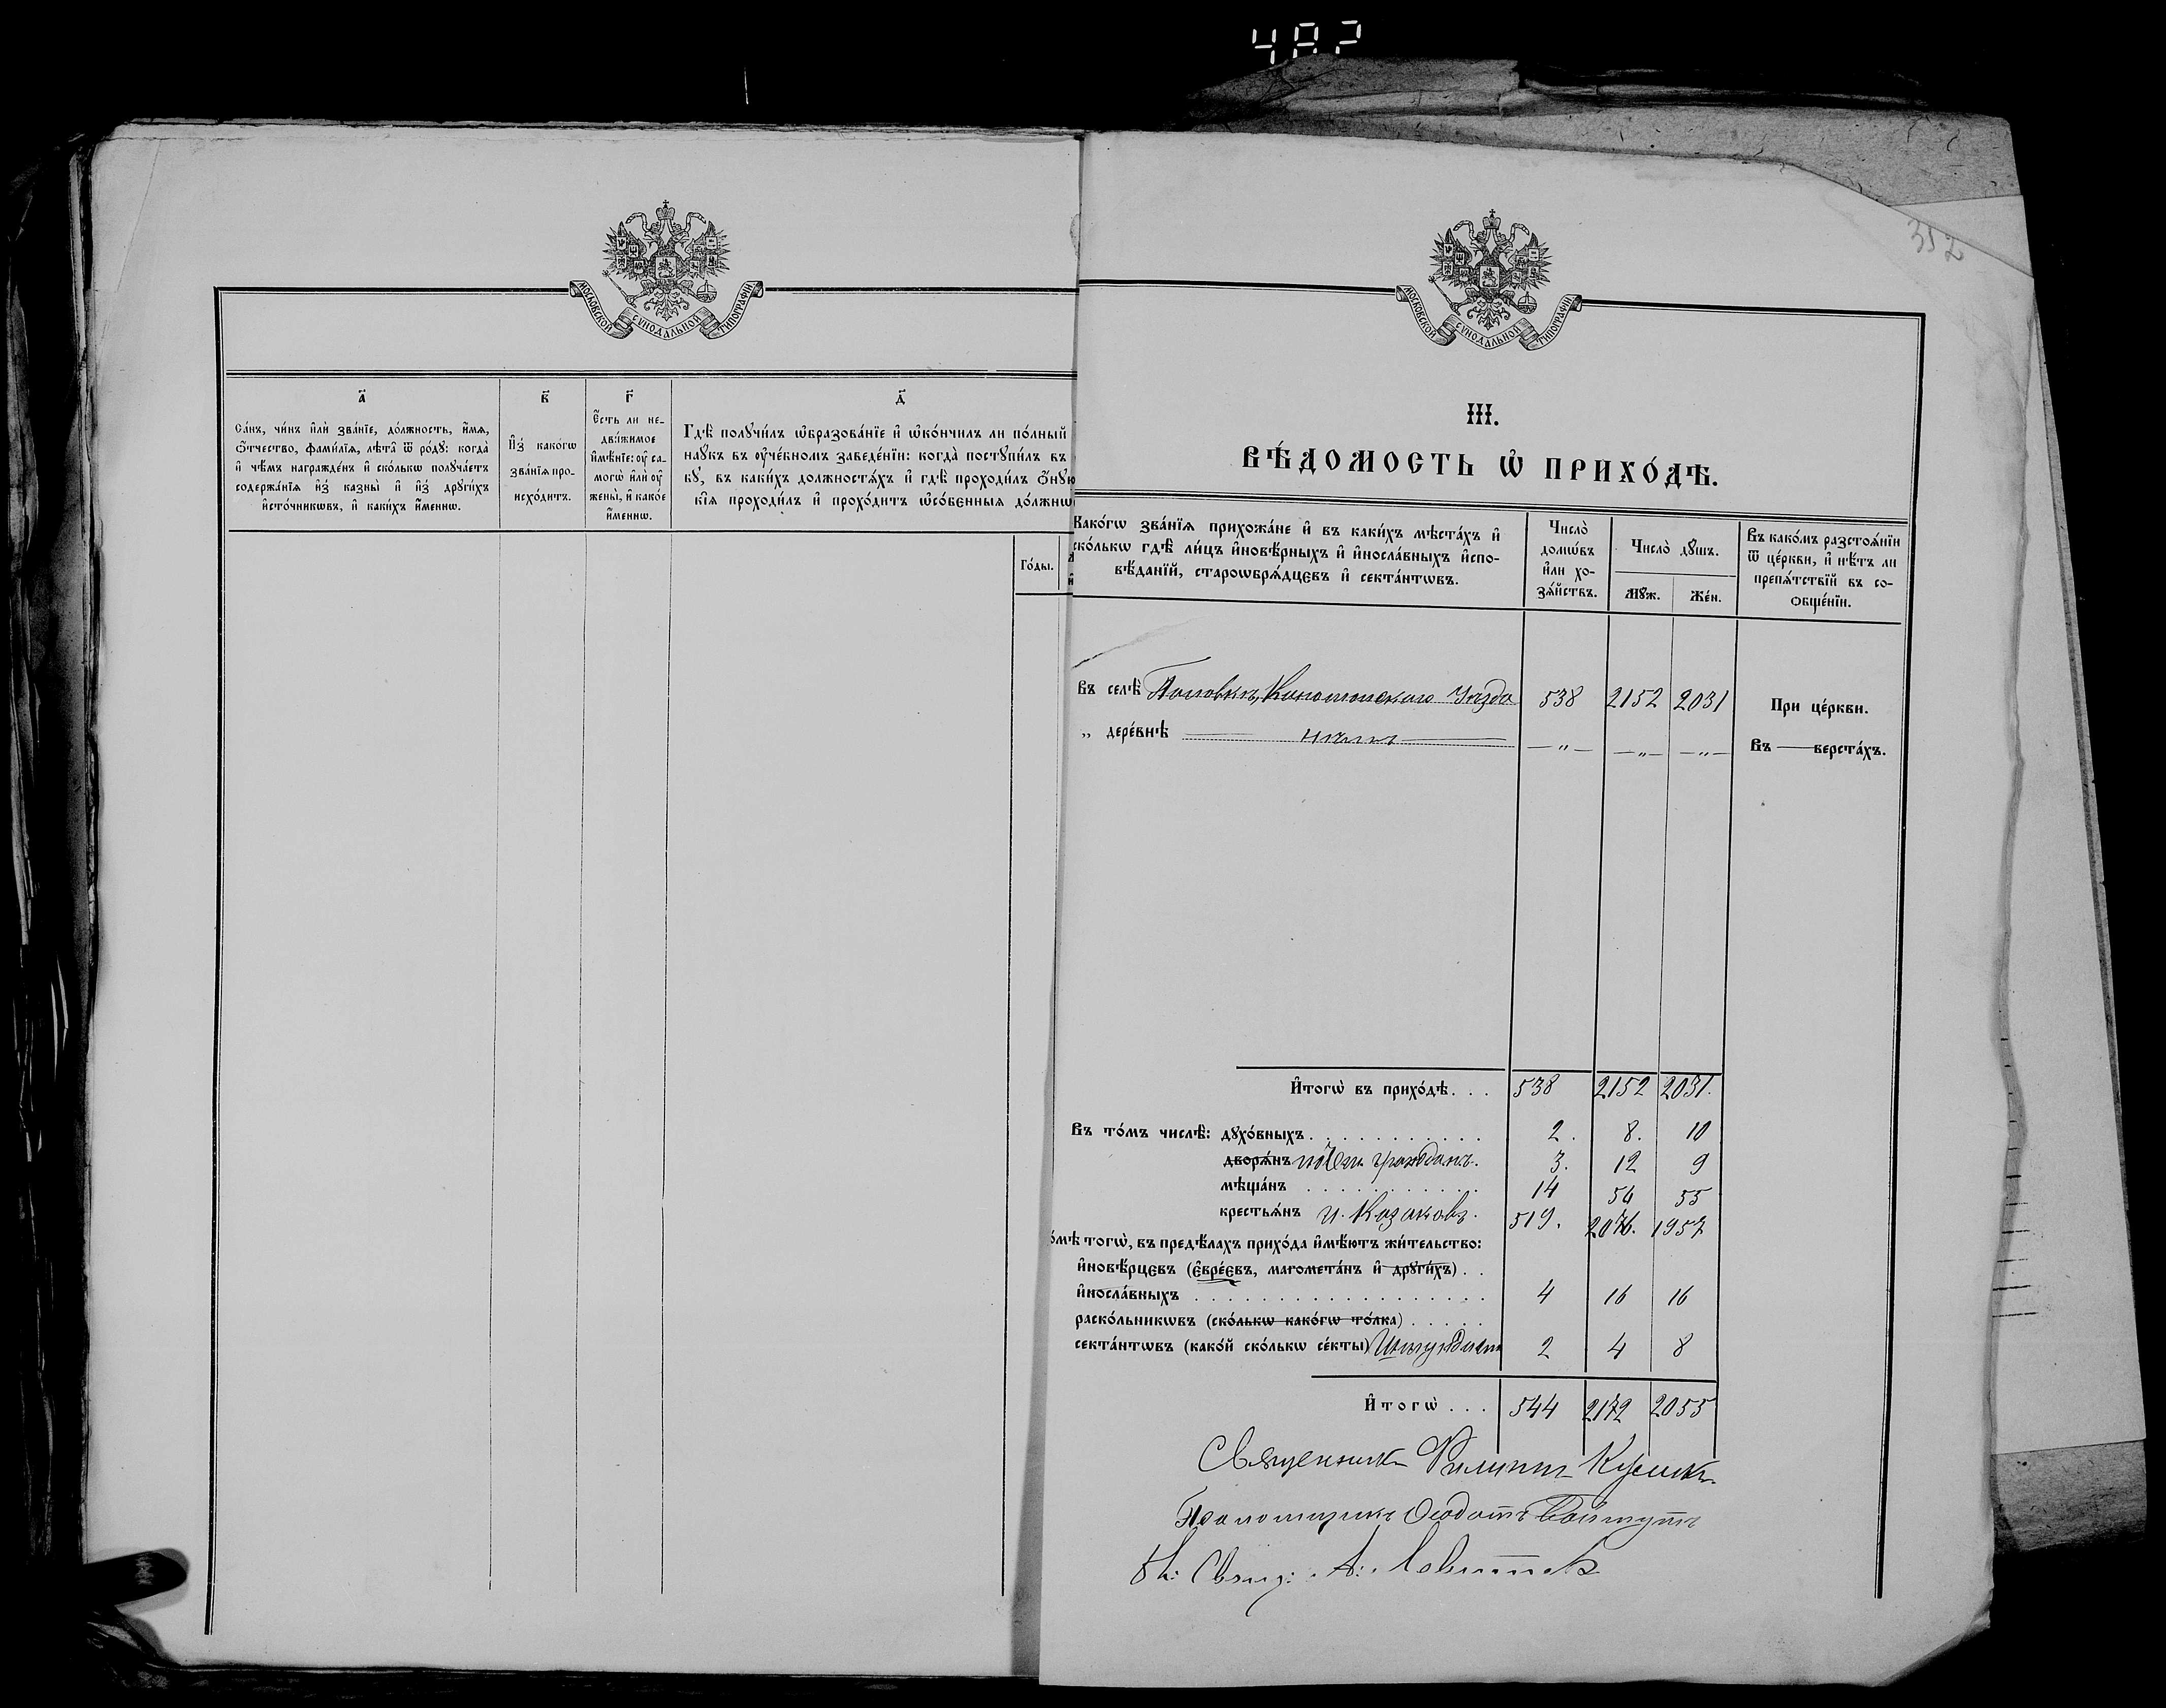 482
МОСКОВСКОЙ СѴНОДАЛЬНОЙ ТИПОГРАФІИ
а҃
Са́нъ, чи́нъ и҆лѝ зва́нїе, до́лжность, и҆́мѧ,
ѻ҆́тчество, фами́лїѧ, лѣ́та ѿ ро́дꙋ: когда̀
и҆ чѣ́мъ награжде́нъ и҆ ско́лькѡ полꙋча́етъ
содержа́нїѧ и҆з̾ казны̀ и҆ и҆з̾ дрꙋги́хъ
и҆сто́чникѡвъ, и҆ каки́хъ и҆́меннѡ.
в҃
И҆з̾ како́гѡ
зва́нїѧ про-
исхо́дитъ.
г҃
Е҆́сть ли не-
дви́жимое
и҆мѣ́нїе: оу҆ са-
могѡ̀ и҆лѝ оу҆
жены̀, и҆ како́е
и҆́меннѡ.
д҃
Гдѣ̀ полꙋчи́лъ ѡ҆бразова́нїе и҆ ѡ҆ко́нчилъ ли по́лный
наꙋ́къ въ оу҆че́бномъ заведе́нїи: когда̀ постꙋпи́лъ въ
бꙋ, въ каки́хъ должностѧ́хъ и҆ гдѣ̀ проходи́лъ ѻ҆́нꙋю
кі̑ѧ проходи́лъ и҆ прохо́дитъ ѡ҆со́бенныѧ до́лжнѡ
Го́ды.
352
МОСКОВСКОЙ СѴНОДАЛЬНОЙ ТИПОГРАФІИ
III.
ВѢ́ДОМОСТЬ Ѡ҆ ПРИХО́ДѢ.
Како́гѡ зва́нїѧ прихожа́не и҆ въ каки́хъ мѣста́хъ и҆
ско́лькѡ гдѣ̀ ли́цъ и҆новѣ́рныхъ и҆ и҆носла́вныхъ и҆спо-
вѣ́данїй, староѡбрѧ́дцевъ и҆ секта́нтѡвъ.
Число̀
домѡ́въ
и҆ли хо-
зѧ́йствъ.
Число̀ дꙋ́шъ.
Мꙋж.
Же́н.
Въ како́мъ разстоѧ́нїи
ѿ це́ркви, и҆ нѣ́тъ ли
препѧ́тствїй въ со-
ѻбще́нїи.
Въ селѣ̀ Поповкѣ, Конотопскаго Уѣзда 538 2152 2031 При це́ркви.
„ дере́внѣ — нѣтъ — — „ — — „ — — „ — Въ — верста́хъ.
И҆тогѡ̀ въ прихо́дѣ. . . 538 2152 2031.
Въ то́мъ числѣ̀: дꙋхо́вныхъ . . . 2. 8. 10
дворѧ́нъ поч. гражданъ. 3. 12 9
мѣща́нъ . . . 14 56 55
крестьѧ́нъ и Казаковъ. 519. 2076. 1957
о́мѣ тогѡ̀, въ предѣ́лахъ прихо́да и҆мѣ́ютъ жи́тельство:
и҆новѣ́рцевъ (є҆вре́євъ, магомета́нъ и҆ дрꙋги́хъ) . .
и҆носла́вныхъ . . . 4 16 16
раско́льникѡвъ (ско́лькѡ како́гѡ то́лка) . . .
секта́нтѡвъ (како́й ско́лькѡ се́кты) Штундист 2 4 8
И҆тогѡ̀ . . . 544 2172 2055
Священникъ Филиппъ
Псаломщикъ Ѳеодотъ
Свящ: А: